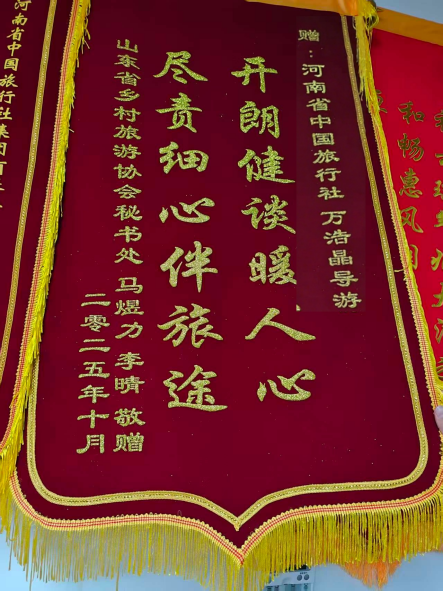 赠：河南省中国旅行社 万浩晶导游
开朗健谈暖人心
尽责细心伴旅途
山东省乡村旅游协会秘书处 马煜力 李晴 敬赠
二零二五年十月
河南省中国旅行社集团
和畅惠风